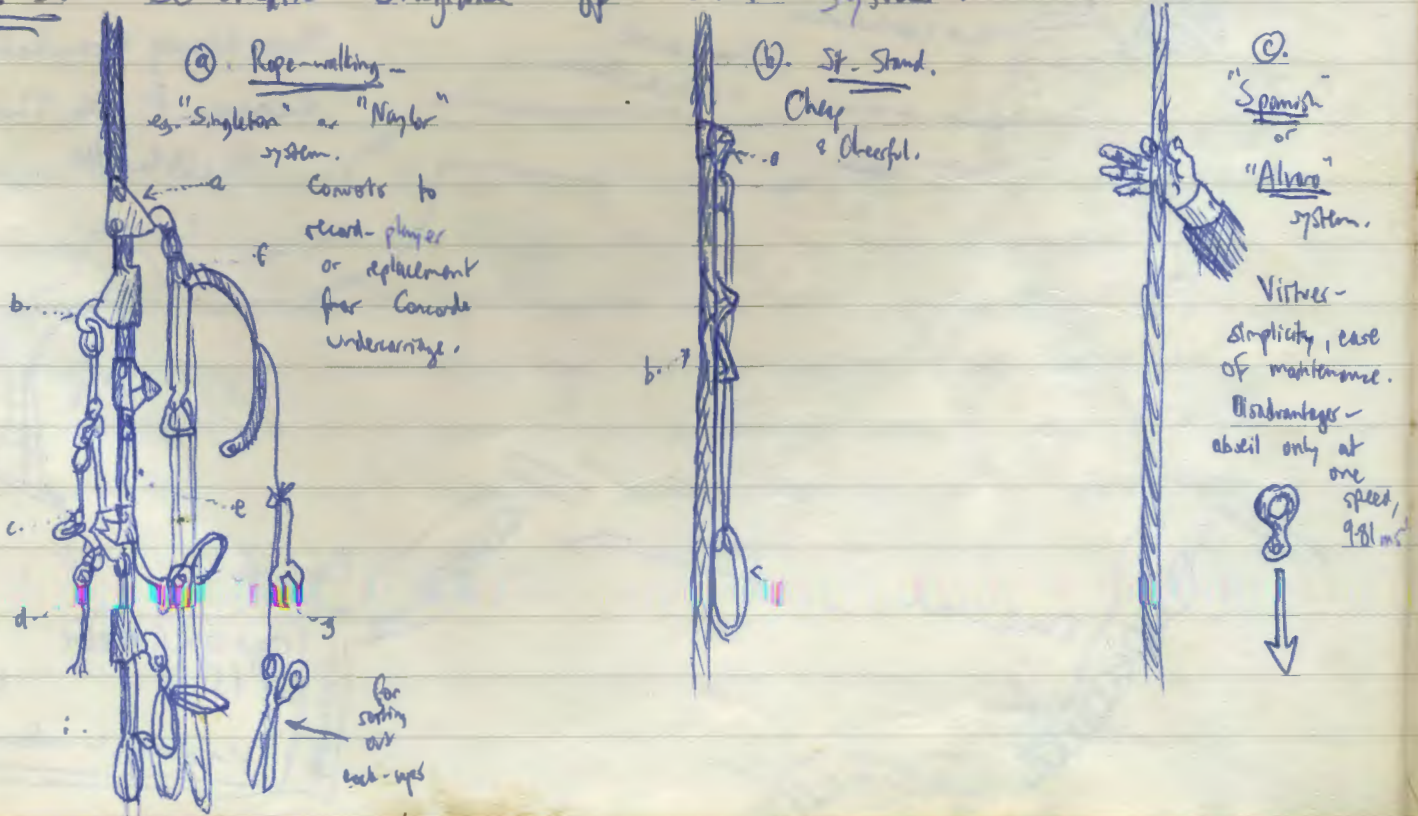 Diagrams of
System
(a). Rope-walking-
eg. "Singleton" or "Naylor"
system.
Converts to
record-player
or replacement
for Concorde
undercarriage.
a
b.
c.
d
e
f
g
i.
for
sorting
out
cock-ups
(b). Sit-Stand.
Cheap
& Cheerful.
a
b.
c
(c).
"Spanish"
or
"Alvaro"
system.
Virtues-
simplicity, ease
of maintenance.
Disadvantages-
abseil only at
one
speed,
9.81 ms